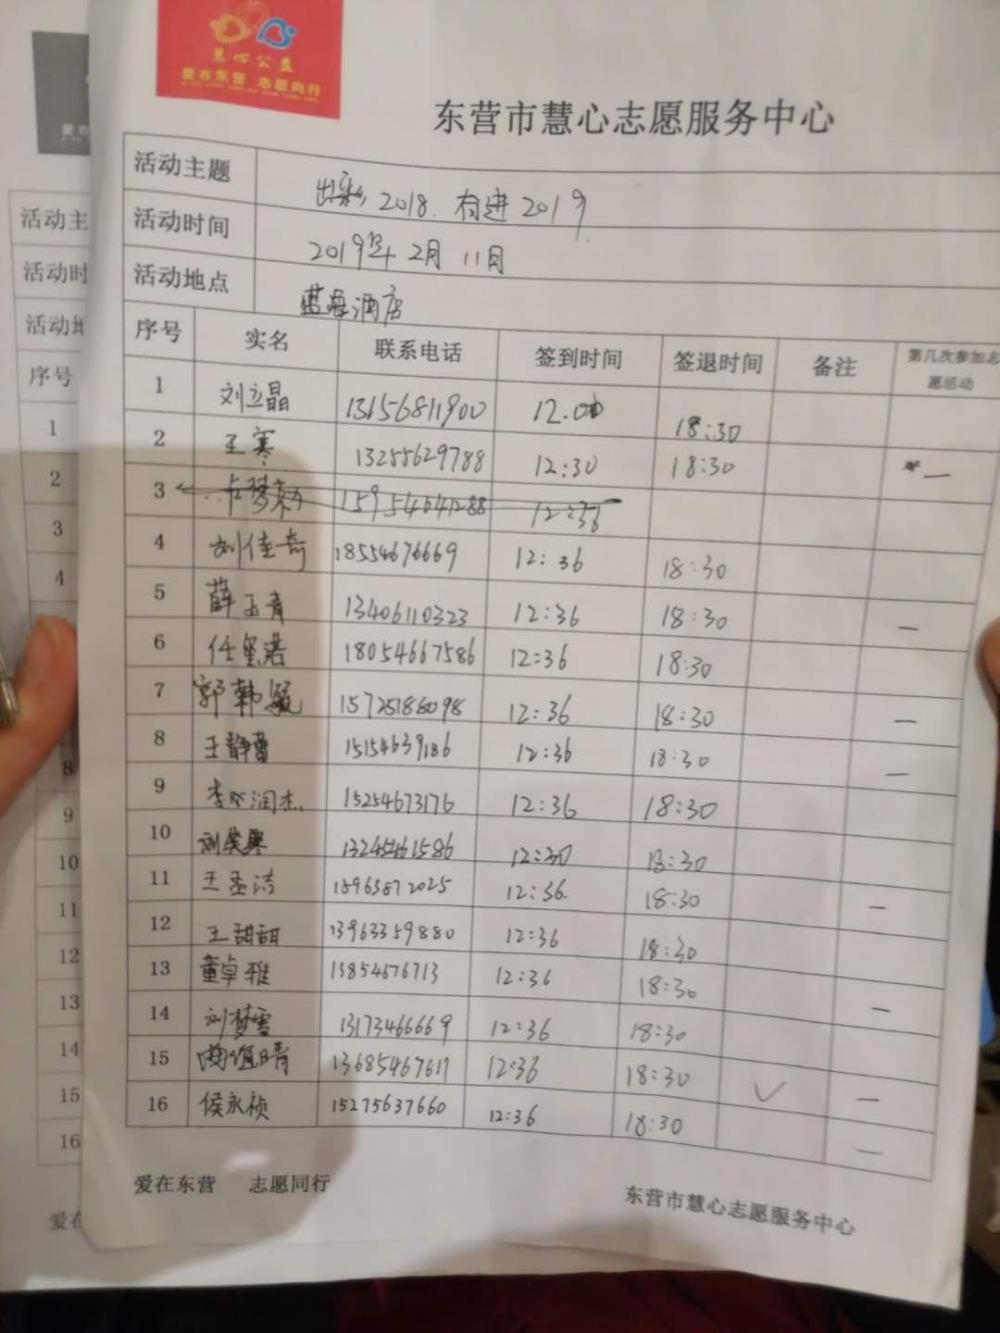 慧心公益
爱在东营 志愿同行
东营市慧心志愿服务中心
活动主题 出彩 2018. 有进 2019
活动时间 2019年 2月 11日
活动地点 蓝海酒店
序号 实名 联系电话 签到时间 签退时间 备注 第几次参加志愿活动
1 刘立晶 13156811900 12.00 18:30
2 王寒 13255629788 12:30 18:30 一
3 12:36
4 刘佳奇 18554676669 12:36 18:30
5 薛玉青 13406110323 12:36 18:30 一
6 18054667586 12:36 18:30
7 郭韩毓 15725186098 12:36 18:30 一
8 王静蕾 15154639186 12:36 18:30 一
9 润杰 15254673176 12:36 18:30
10 刘笑寒 12:30 18:30
11 王孟洁 15963872025 12:36. 18:30 一
12 王甜甜 13963359880 12:36 18:30
13 董卓雅 13854676713 12:36 18:30 一
14 刘梦雪 13173466669 12:36 18:30
15 晴 13685467617 12:36 18:30 一
16 侯永祯 15275637660 12:36 18:30 一
爱在东营 志愿同行 东营市慧心志愿服务中心
活动主
活动时
活动地
序号
1
2
3
4
8
9
10
11
12
13
14
15
16
爱在